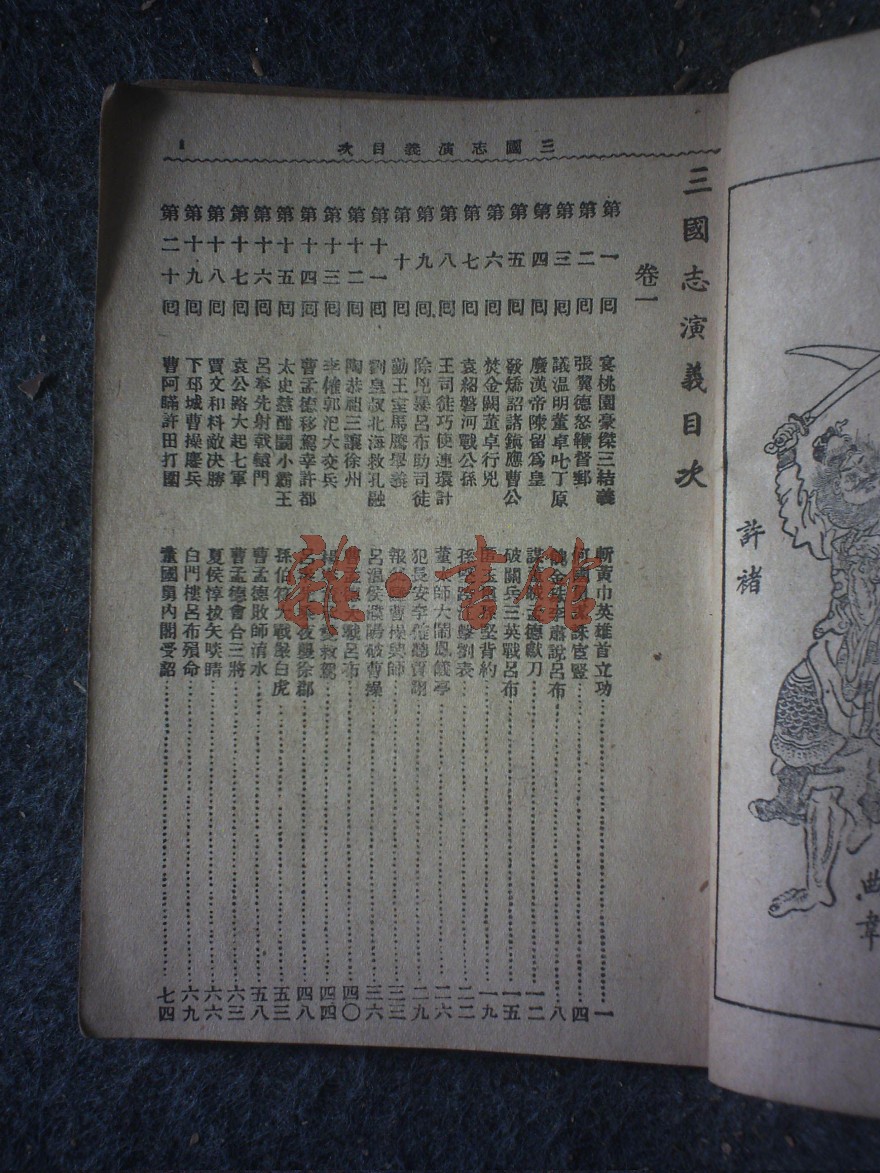 三國志演義目次 1
三國志演義目次
卷一
第一回 宴桃園豪傑三結義 斬黃巾英雄首立功 一
第二回 張翼德怒鞭督郵 何國舅謀誅宦豎 四
第三回 議溫明董卓叱丁原 餽金珠李肅說呂布 八
第四回 廢漢帝陳留爲皇 謀董賊孟德獻刀 一二
第五回 發矯詔諸鎮應曹公 破關兵三英戰呂布 一五
第六回 焚金闕董卓行兇 匿玉璽孫堅背約 一九
第七回 袁紹磐河戰公孫 孫堅跨江擊劉表 二二
第八回 王司徒巧使連環計 董太師大鬧鳳儀亭 二六
第九回 除兇暴呂布助司徒 犯長安李傕聽賈詡 二九
第十回 勤王室馬騰舉義 報 曹操興師 三三
第十一回 劉皇叔北海救孔融 呂溫侯濮陽破曹操 三六
第十二回 陶恭祖三讓徐州 曹 戰呂布 四〇
第十三回 李傕郭汜大交兵 楊 雙救駕 四四
第十四回 曹孟德移駕幸許都 呂 夜襲徐郡 四八
第十五回 太史慈酣鬭小霸王 孫伯符大戰嚴白虎 五三
第十六回 呂奉先射戟轅門 曹孟德敗師淯水 五八
第十七回 袁公路大起七軍 曹孟德會合三將 六三
第十八回 賈文和料敵決勝 夏侯惇拔矢啖睛 六六
第十九回 下邳城曹操鏖兵 白門樓呂布殞命 六九
第二十回 曹阿瞞許田打圍 董國舅內閣受詔 七四
許褚
典韋
雜·書館